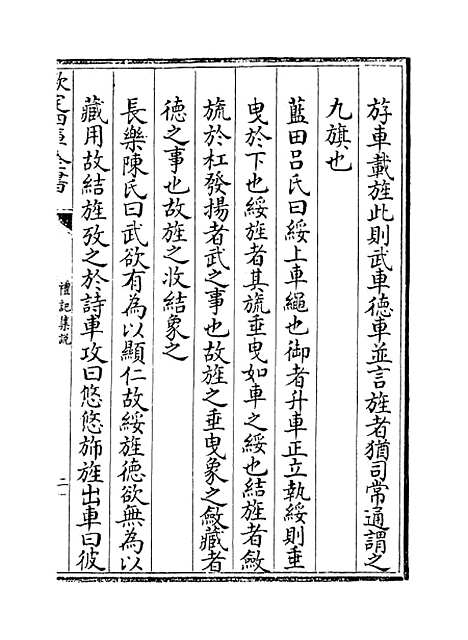 斿車載旌此則武車德車並言旌者猶司常通謂之
九旗也
藍田吕氏曰綏上車繩也御者升車正立執綏則垂
曳於下也綏旌者其旒垂曳如車之綏也結旌者斂
旒於杠發揚者武之事也故旌之垂曳象之斂藏者
德之事也故旌之收結象之
長樂陳氏曰武欲有為以顯仁故綏旌德欲無為以
藏用故結旌攷之於詩車攻曰悠悠斾旌出車曰彼
欽定四庫全書
禮記集說